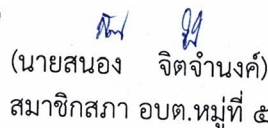 (นายสนอง จิตจำนงค์)
สมาชิกสภา อบต.หมู่ที่ ๕